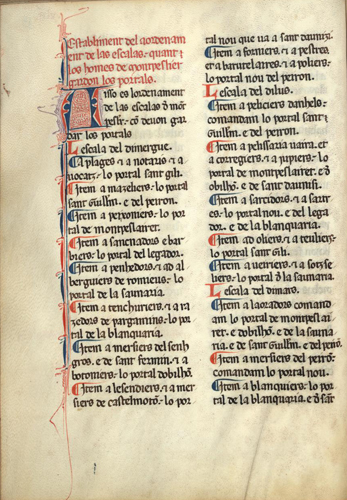 Establiment del ordenam
ent de las escalas. quant
los homes de montpeslier
gardon los portals.
Aisso es lordenament
de las escalas de mont
peslier. com devon gar
dar los portals
Lescala del dimergue.
Caplages. et a notaris et a
portal sant gili.
Item a mazeliers. lo portal
sant guillem. e del peiron.
Item a peissoniers. lo por
tal de montpeslairet.
Item a sanenadors e bar
biers. lo portal del legador.
Item a penhedors. et ad al
berguiers de romieus. lo
portal de la saunaria
Item a tenchuriers. et a ra
zedors de pargamins. lo por
tal de la blanquaria.
Item a mersiers del senh
gros. e de sant fermin. et a
botoniers. lo portal dobilho.
Item a lesendiers. et a mer
siers de castelmoton. lo por
tal nou que va a sant daunizi.
Item a forniers. et a pestres.
et a barutelaires. et a poliers.
lo portal nou del peiron.
Lescala del dilus.
Item a peliciers danhels.
comandam lo portal sant
Guillem. e del peiron.
Item a pelissaria vaira. et
a corregiers. et a jupiers. lo
portal de montpeslairet. e
dobilho. e de sant daunisi.
Item a sarcidors. et a sarto
res. lo portal nou. e del lega
dor. e de la blanquaria.
Item ad oliers. et a teuliers.
lo portal sant gili.
Item a veiriers. et a
liers. lo portal de la saunaria.
Lescala del dimars.
Item a laoradors comand
am lo portal de montpeslai
ret. e dobilho. e de la sauna
ria. e de sant Guillem. e del peiron.
Item a mersiers del peiron.
comandam lo portal nou.
Item a blanquiers. lo por
tal de la blanquaria. e de sant